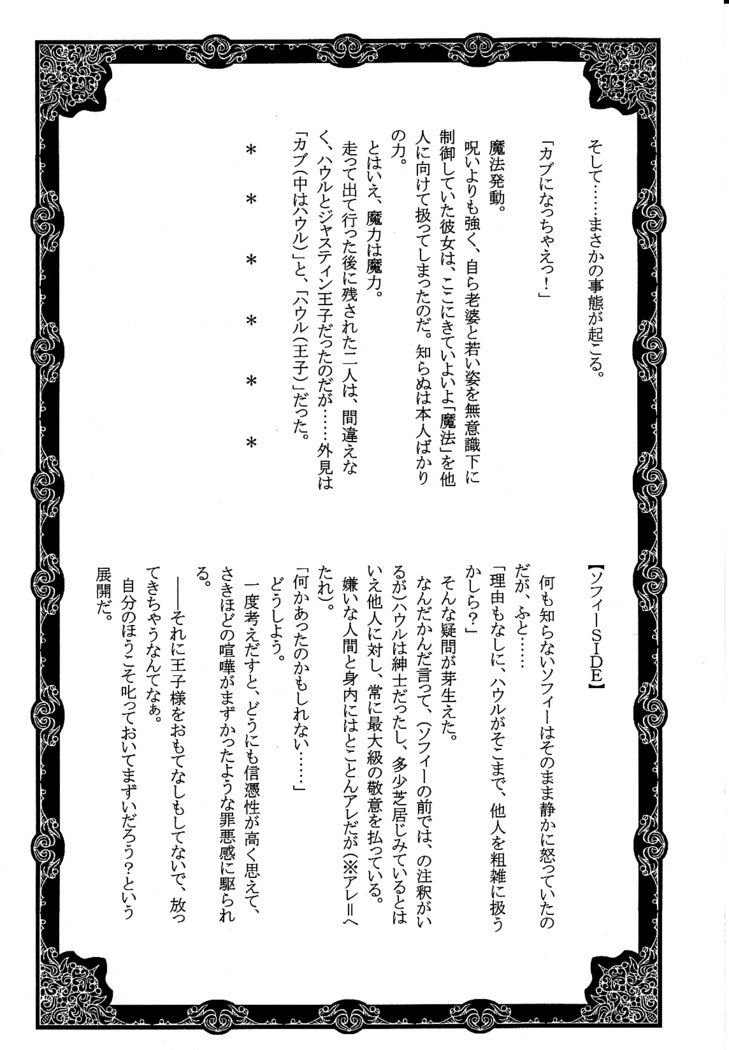 そして……まさかの事態が起こる。
「カブになっちゃえっ！」
魔法発動。
呪いよりも強く、自ら老婆と若い姿を無意識下に
制御していた彼女は、ここにきていよいよ「魔法」を他
人に向けて扱ってしまったのだ。知らぬは本人ばかり
の力。
とはいえ、魔力は魔力。
走って出て行った後に残された二人は、間違えな
く、ハウルとジャスティン王子だったのだが……外見は
「カブ（中はハウル）」と、「ハウル（王子）」だった。
＊　＊　＊　＊　＊　＊
【ソフィーＳＩＤＥ】
何も知らないソフィーはそのまま静かに怒っていたの
だが、ふと……
「理由もなしに、ハウルがそこまで、他人を粗雑に扱う
かしら？」
そんな疑問が芽生えた。
なんだかんだ言って、（ソフィーの前では、の注釈がい
るが）ハウルは紳士だったし、多少芝居じみているとは
いえ他人に対し、常に最大級の敬意を払っている。
嫌いな人間と身内にはとことんアレだが（※アレ＝へ
たれ）。
「何かあったのかもしれない……」
どうしよう。
一度考えだすと、どうにも信憑性が高く思えて、
さきほどの喧嘩がまずかったような罪悪感に駆られ
る。
――それに王子様をおもてなしもしてないで、放っ
てきちゃうなんてなぁ。
自分のほうこそ叱っておいてまずいだろう？という
展開だ。